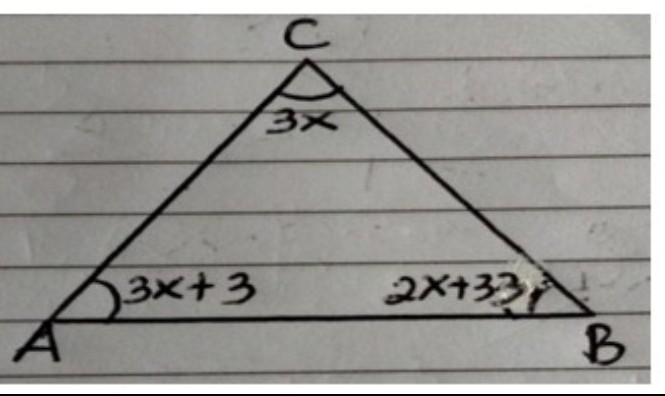 C
3x
3x+3 2x+33
A B